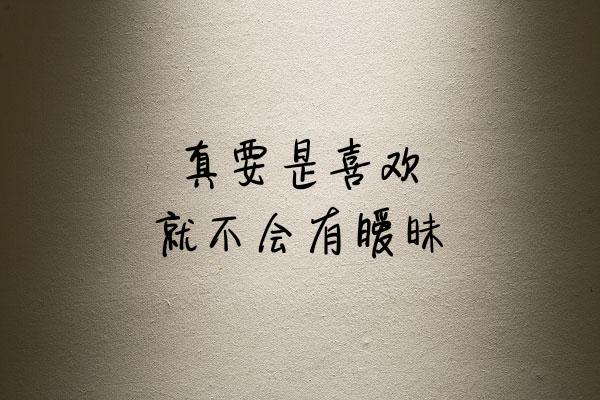 真要是喜欢
就不会有暧昧